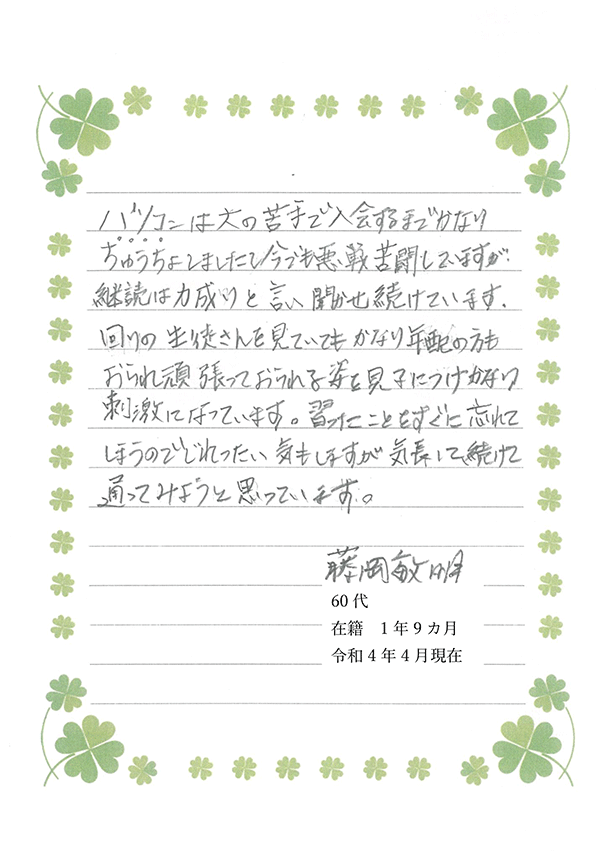 パソコンは大の苦手で入会するまでかなり
ちゅうちょしましたし今でも悪戦苦闘していますが
継読は力成りと言い聞かせ続けています。
回りの生徒さんを見ていてもかなり年配の方も
おられ頑張っておられる姿を見るにつけかなり
刺激になっています。習ったことをすぐに忘れて
しまうのでじれったい気もしますが気長にて続けて
通ってみようと思っています。
藤岡敏明
60代
在籍　1年9カ月
令和4年4月現在